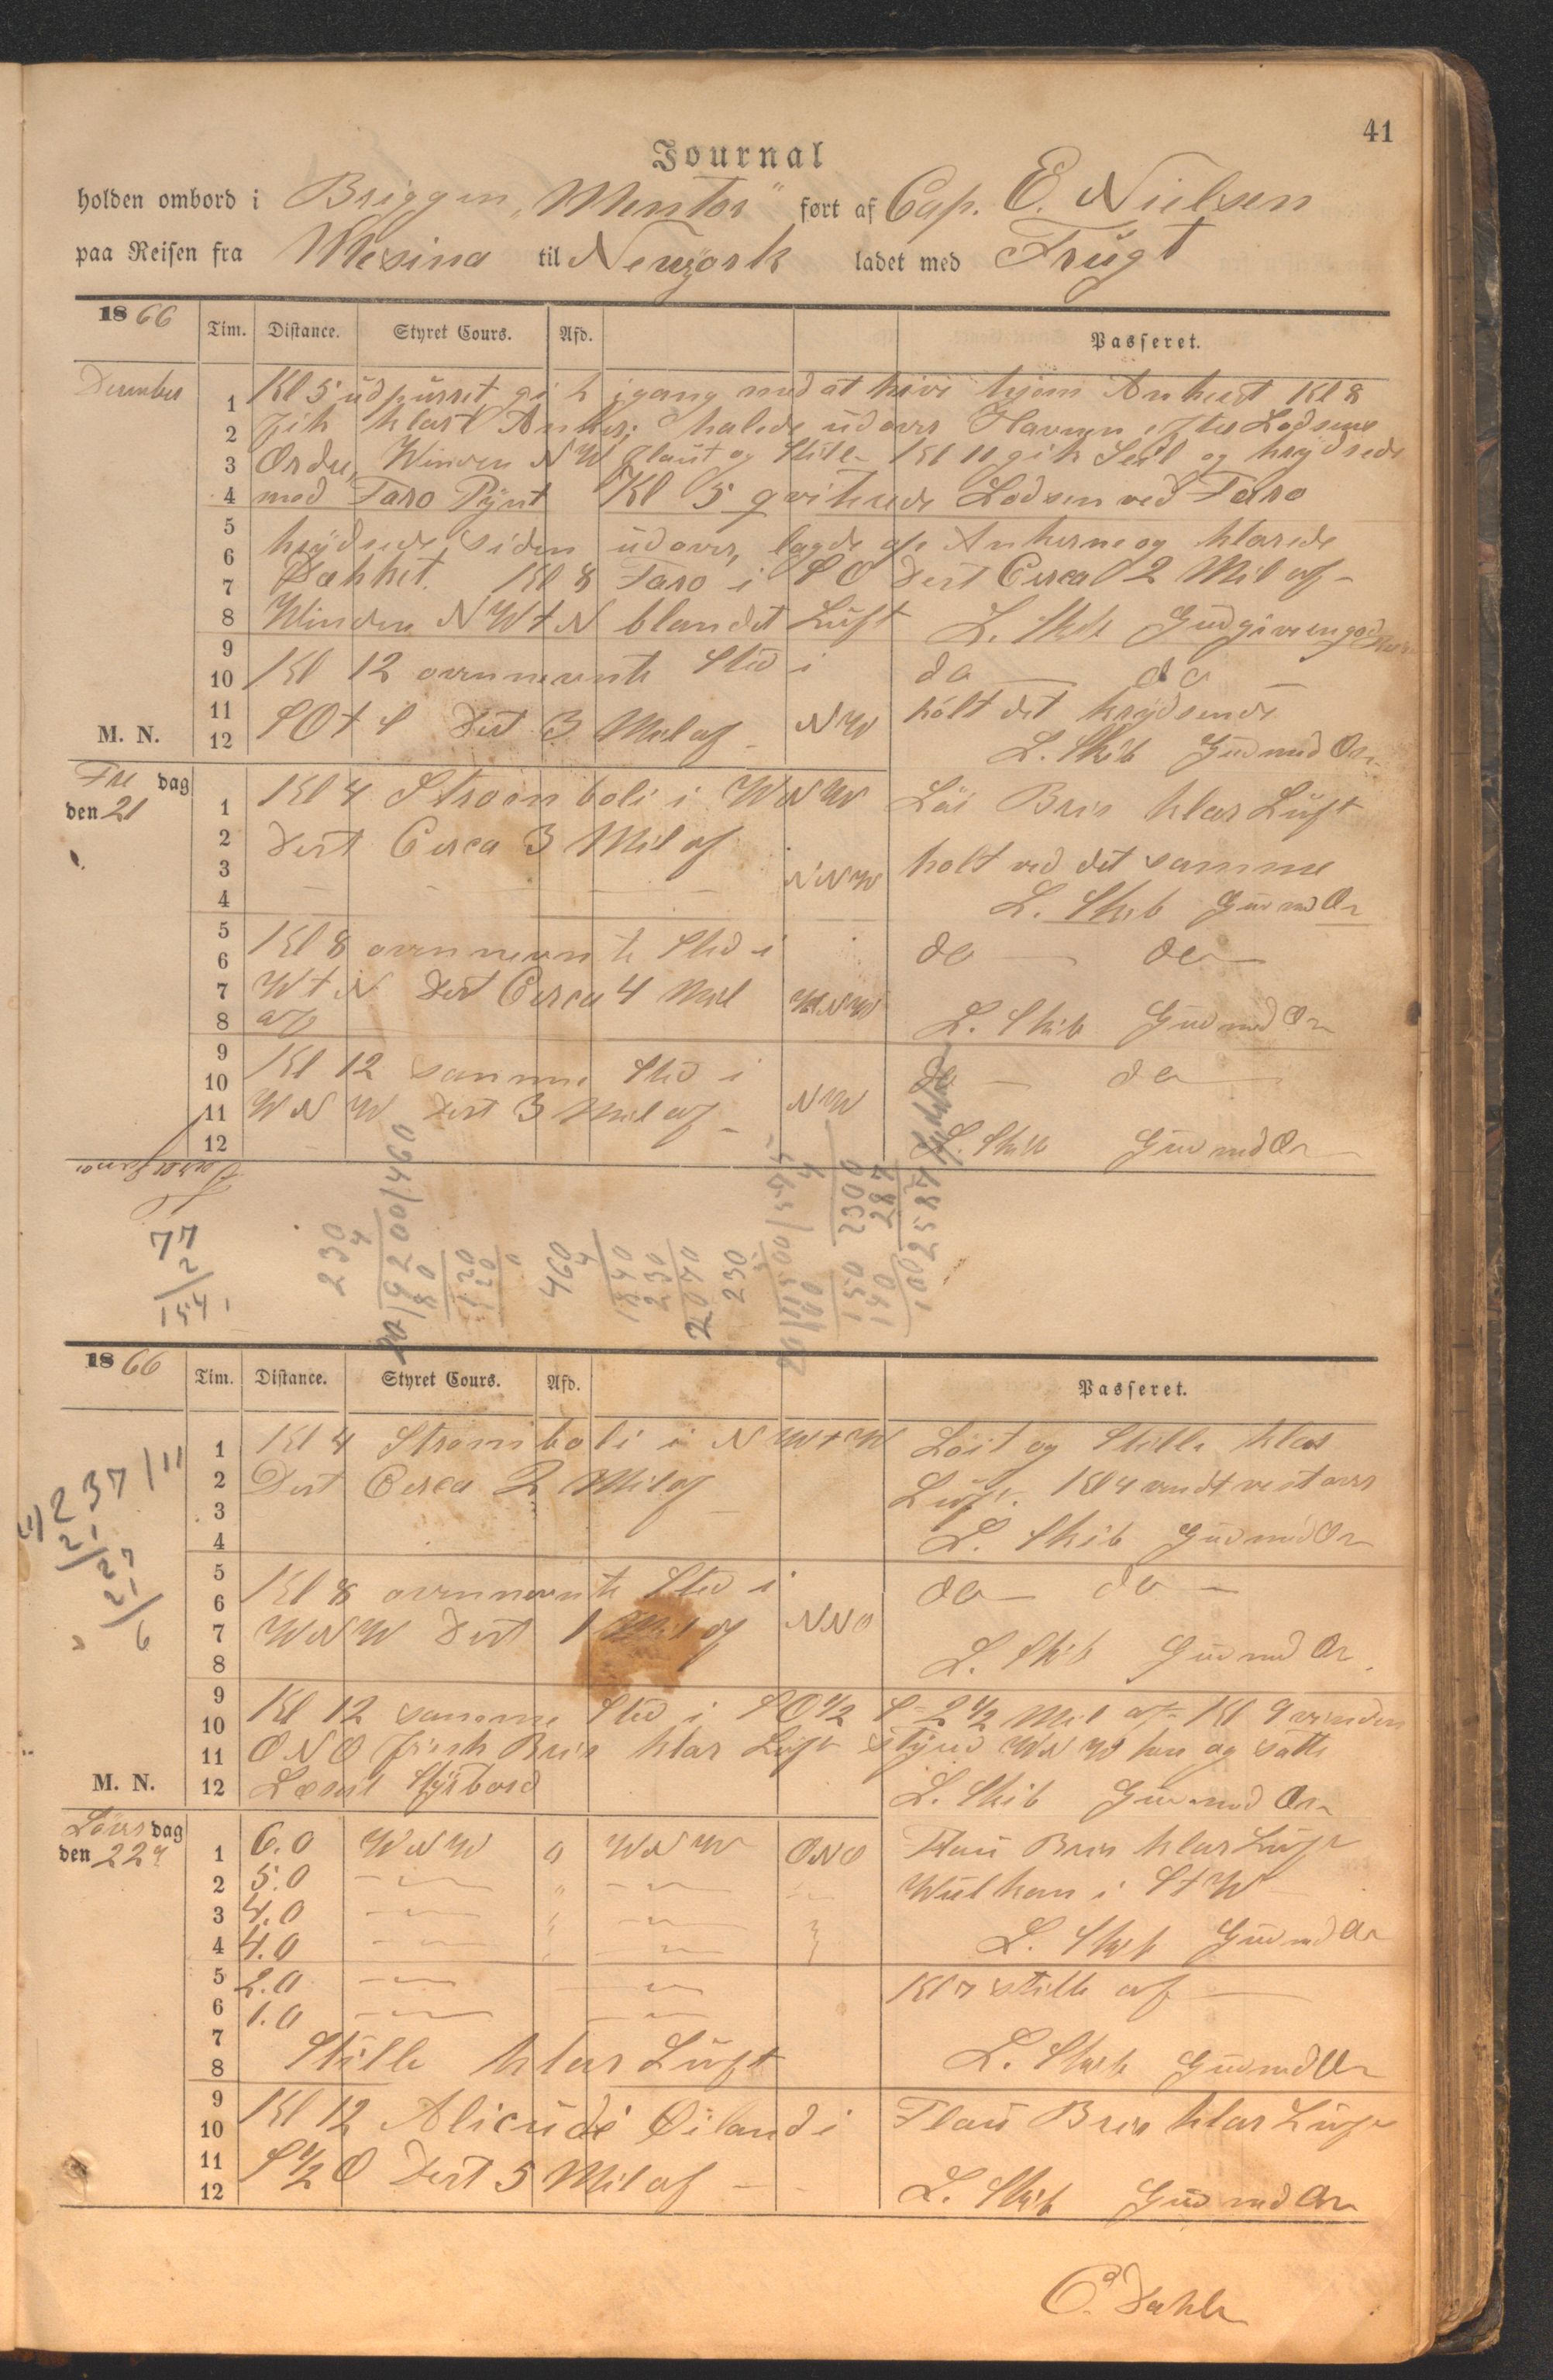 41
Journal
holden ombord i Briggen „Mentor“ ført af Cap. E. Nielsen
paa Reisen fra Mesina til Newyork ladet med Frugt
1866 Tim. Distance. Styret Cours. Afd. Passeret.
December
1 Kl 5 udpurret gik igang med at hive hjem Ankeret Kl 8
2 fik klart Anker; halede udover Havnen efter Lodsens
3 Ordre, Winden NW flaut og Stille Kl 11 gik Seil og krydsede
4 mod Faro Pynt Kl 5 qviterede Lodsen ved Faro
5
6 krydsede siden udover, lagde af Ankerne og klarede
7 Dækket. Kl 8 Faro i SO Dist Circa 2 Mil af -
8 Winden NWtN blandet Luft L. Skib Gud given god
9
10 Kl 12 ovennevnte Sted i do — do —
11 SOtS Dist 3 Mil af - NW holt det krydsende
M. N. 12 L. Skib Gud med Os
Fre dag
den 21
1 Kl 4 Stroomboli i WNW Löi Bris klar Luft
2 Dist Circa 3 Mil af
3 NNW holt ved det samme
4 L. Skib Gud med Os
5
6 Kl 8 ovennevnte Sted i do — do —
7 WtN Dist Circa 4 Mil WNW
8 af L. Skib Gud med Os
9
10 Kl 12 samme Sted i do — do —
11 WNW Dist 3 Mil af - NW
12 L. Skib Gud med Os
77
2
154
230
4
20/9200/460
80
120
120
0
460
4
1840
230
2070
230
5
20/11500/575
100
150
140
100
4
2300
287
2587
1866 Tim. Distance. Styret Cours. Afd. Passeret.
237/11
21
27
21
6
1 Kl 4 Stromboli i NWtW Löit og Stille klar
2 Dist Circa 2 Mil af Luft. Kl 4 vendt vestover
3
4 L. Skib Gud med Os
5
6 Kl 8 ovennevnte Sted i do — do —
7 WNW Dist 1 Mil af NNO
8 L. Skib Gud med Os
9
10 Kl 12 samme Sted i SO 1/2 S - 2 1/2 Mil af - Kl 9 vinden
11 ONO frisk Bris klar Luft styred WNW hen og satte
M. N. 12 Læseil Styrbord L. Skib Gud med Os
Löver dag
den 22
1 6.0 WNW 0 WNW ONO Flau Bris klar Luft
2 5.0 — " — " — Wulkan i StW
3 4.0 — " — "
4 4.0 — " — " L. Skib Gud med Os
5 2.0 — " — " Kl 7 stille af —
6 1.0 — " — "
7
8 Stille klar Luft L. Skib Gud med Os
9
10 Kl 12 Alicudi Øiland i Flau Bris klar Luft
11 S 1/2 O Dist 5 Mil af —
12 L. Skib Gud med Os
C. Dahl